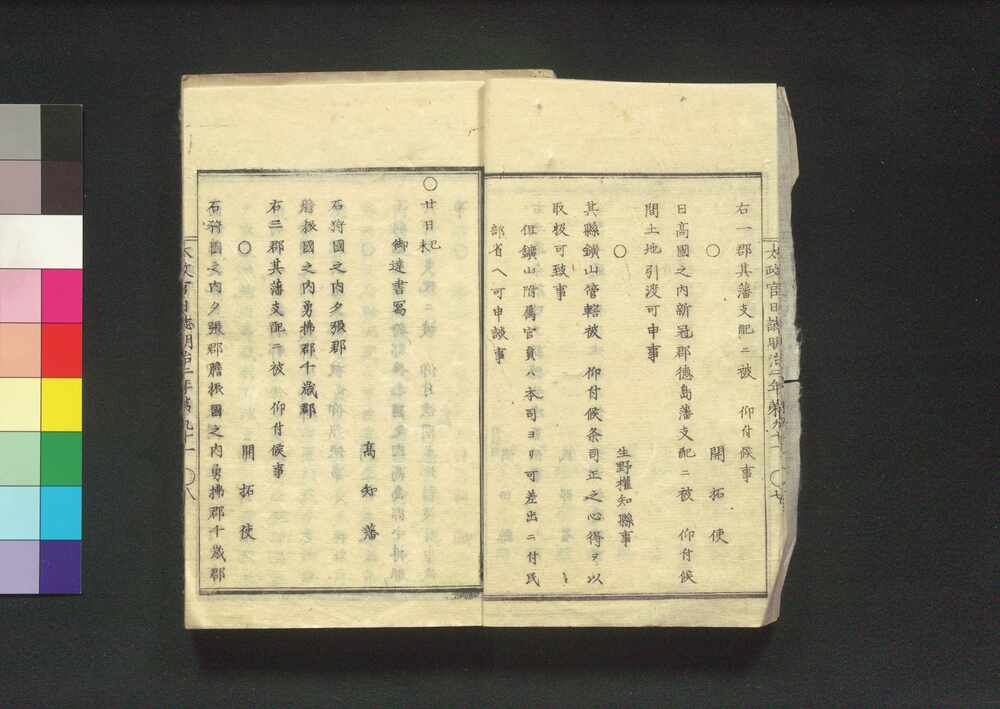 太政官日誌明治二年第九十一 〇七
右一郡其藩支配ニ被 仰付候事
〇 開拓使
日高國之内新冠郡德島藩支配ニ被 仰付候
間土地引渡可申事
〇 生野權知縣事
其縣鑛山管轄被 仰付候条司正之心得ヲ以
取扱可致事
但鑛山附屬官員ハ本司ヨリ可差出ニ付民
部省ヘ可申談事
〇廿日 己未
御達書寫
高知藩
石狩國之内夕張郡
膽振國之内勇拂郡千歳郡
右三郡其藩支配ニ被 仰付候事
〇 開拓使
石狩國之内夕張郡膽振國之内勇拂郡千歳郡
太政官日誌明治二年第九十一 〇八